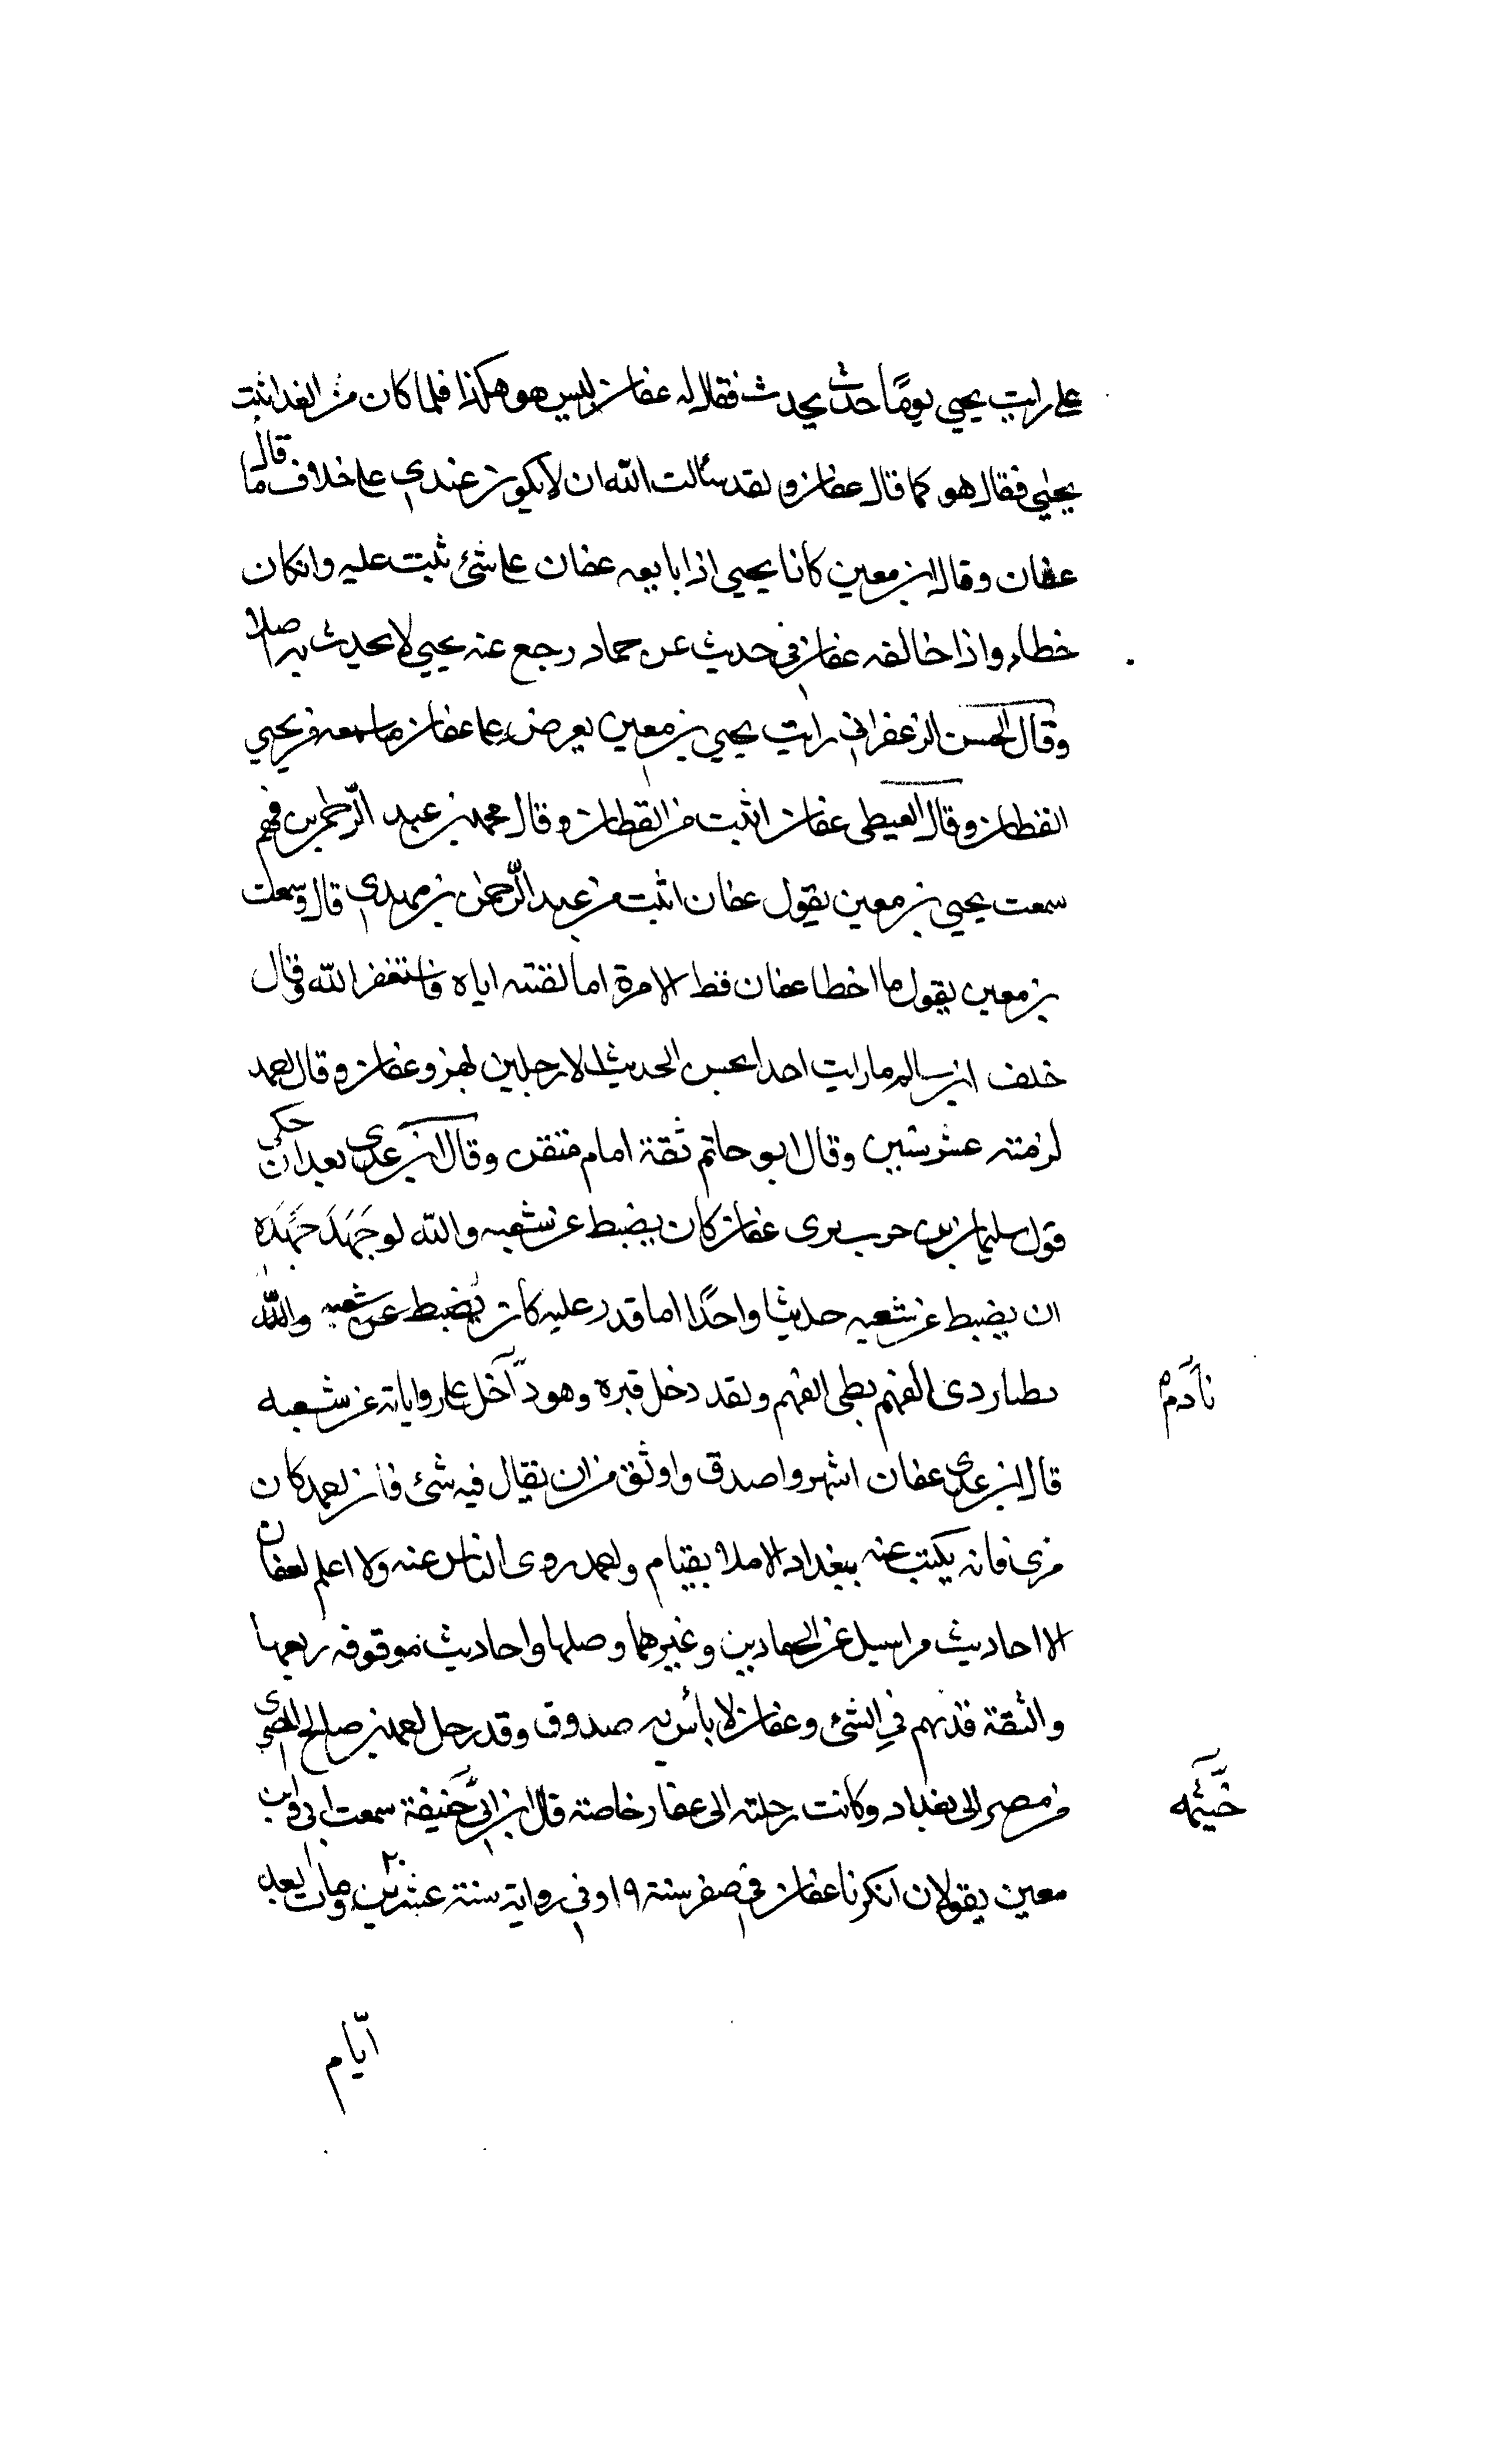 علي رايت يحيى يومًا حدث بحديث فقال له عفان ليس هو هكذا فلما كان من الغد اتيت
يحيى فقال هو كما قال عفان ولقد سألت الله ان لا يكون عندي على خلاف ما قال
عفان وقال ابن معين كانا يحيى اذا بابعه عفان على شئ ثبت عليه وانكان
خطاء واذا خالفه عفان في حديث عن حماد رجع عنه يحيى لا يحدث به اصلا
وقال الحسن الزعفراني رايت يحيى بن معين يعرض على عفان ما سمعه من يحيى
القطان وقال المعيطى عفان اثبت من القطان وقال محمد بن عبد الرحمن بن فهم
سمعت يحيى بن معين يقول عفان اثبت من عبد الرحمن بن مهدي قال وسمعت
بن معين يقول ما اخطا عفان قط الا مرة اما لقنته اياه فاستغفر الله وقال
خلف ابن سالم ما رايت احدا يحسن الحديث الا رجلين بهز وعفان وقال احمد
لزمته عشر سنين وقال ابو حاتم ثقة امام متقن وقال ابن عدي بعد ان حكى
قول سليمان بن حرب برى عفان كان يضبط عن شعبه والله لو جَهَدَ جَهَدَه
ان يضبط عن شعبه حديثا واحدًا اما قدر عليه كان يضبط عن شعبه والله
بطيا ردى الفهم بطى الفهم ولقد دخل قبره وهو داخل على رواياته عن شعبه
نادم
قال ابن عدي عفان اشهر واصدق واوثق من ان يقال فيه شئ فان احمد كان
مري فانه يكتب عنه ببغداد الاملا بقيام واحمد روى الناس عنه ولا اعلم لعفان
الا احاديث مراسيل عن الحمادين وغيرهما وصلها واحاديث موقوفه ربعها
والثقة قد يهم في الشئ وعفان لا بأس به صدوق وقد رحل احمد بن صالح المصري
من مصر الى بغداد وكانت رحلته الى عفان خاصة قال ابن ابي حنيفة سمعت ابي وابن
خيثمه
معين يقولان انكرنا عفان في صفر سنة ١٩ وفي رواية سنة عشرين ٢٠ ومات بعد
ايّام